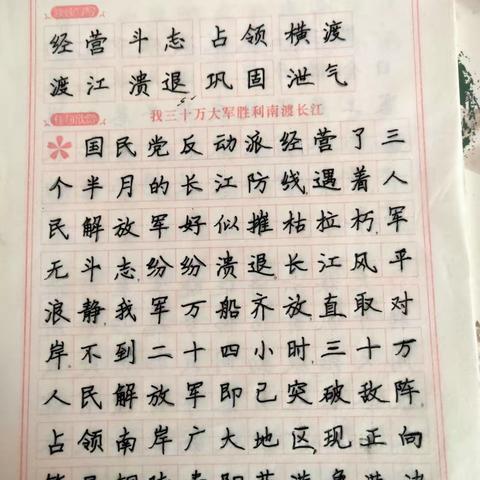 经营 斗志 占领 横渡
渡江 溃退 巩固 泄气
我三十万大军胜利南渡长江
国民党反动派经营了三
个半月的长江防线,遇着人
民解放军好似摧枯拉朽,军
无斗志,纷纷溃退。长江风平
浪静,我军万船齐放,直取对
岸,不到二十四小时,三十万
人民解放军即已突破敌阵,
占领南岸广大地区,现正向